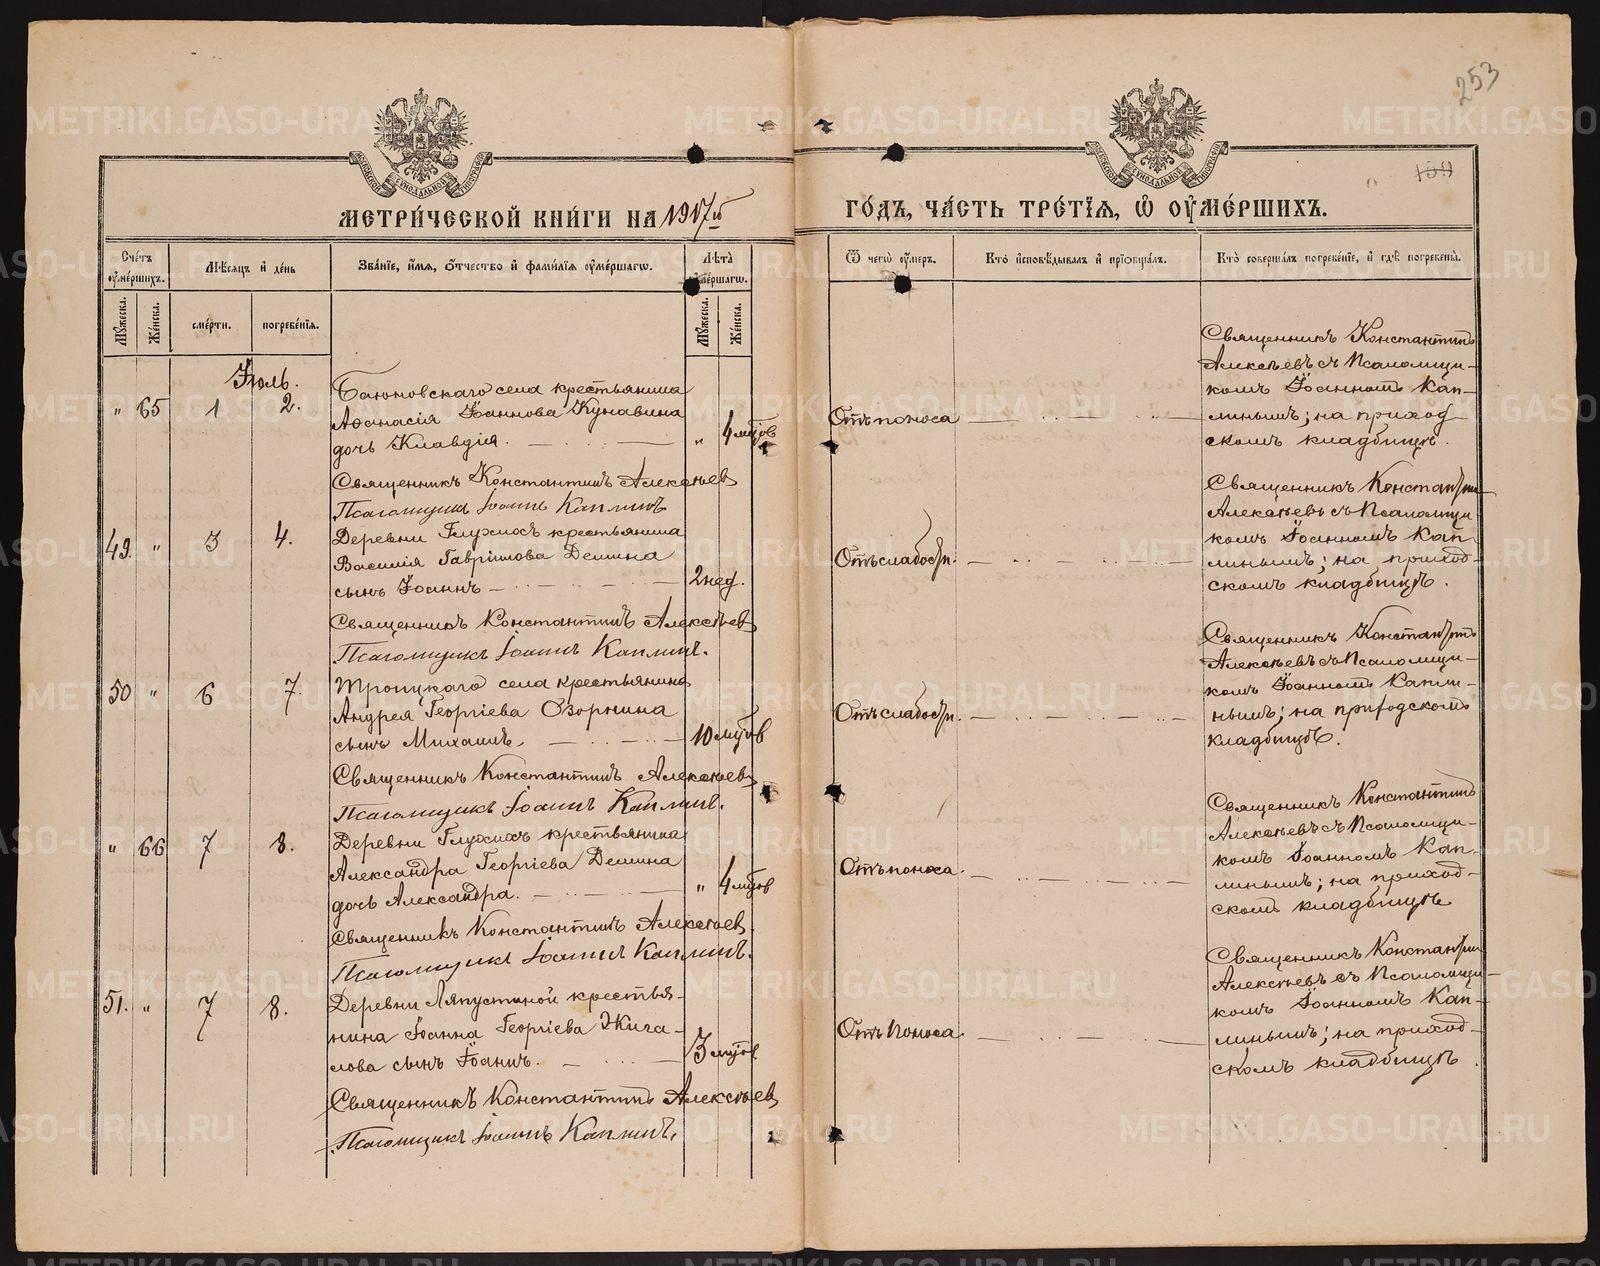 253
159
МОСКОВСКОЙ СѴНОДАЛЬНОЙ ТИПОГРАФІИ
МОСКОВСКОЙ СѴНОДАЛЬНОЙ ТИПОГРАФІИ
МЕТРИ́ЧЕСКОЙ КНИ́ГИ НА 1917й
ГО́ДЪ, ЧА́СТЬ ТРЕ́ТІѦ, Ѡ҆ ОУ҆МЕ́РШИХЪ.
Сче́тъ оу҆ме́ршихъ.
Мѣ́сѧцъ и҆ де́нь
Зва́нїе, и҆́мѧ, ѻ҆́тчество и҆ фами́лїѧ оу҆ме́ршагѡ.
Лѣ́та оу҆ме́ршагѡ.
Ѿ чегѡ̀ оу҆́меръ.
Кто̀ и҆сповѣ́дывалъ и҆ прїѡбща́лъ.
Кто̀ соверша́лъ погребе́нїе, и҆ гдѣ̀ погребены̀.
Мꙋ́жеска.
Же́нска.
сме́рти.
погребе́нїѧ.
Мꙋ́жеска.
Же́нска.
Іюль.
" 65 1 2.
Баюновскаго села крестьянина
Аѳанасія Іоаннова Кунавина
дочь Клавдія.
" 4 мѣсцов
Отъ поноса
Священникъ Константинъ
Алексѣевъ съ Псаломщи-
комъ Іоанномъ Кап-
линымъ; на приход-
скомъ кладбищѣ.
Священникъ Константинъ Алексѣев
Псаломщикъ Іоаннъ Каплинъ.
49. " 3 4.
Деревни Глухихъ крестьянина
Василія Гаврілова Демина
сынъ Іоаннъ
2 нед.
Отъ слабости.
Священникъ Константинъ
Алексѣевъ съ Псаломщи
комъ Іоанномъ Кап-
линымъ; на приход-
скомъ кладбищѣ.
Священникъ Константинъ Алексѣев
Псаломщикъ Іоаннъ Каплинъ.
50 " 6 7.
Троицкаго села крестьянина
Андрея Георгіева Озорнина
сынъ Михаилъ.
10 мѣсцов
Отъ слабости.
Священникъ Константинъ
Алексѣевъ съ Псаломщи-
комъ Іоанномъ Капли-
нымъ; на приходскомъ
кладбищѣ.
Священникъ Константинъ Алексѣевъ
Псаломщикъ Іоаннъ Каплинъ.
" 66 7 8.
Деревни Глухихъ крестьянина
Александра Георгіева Демина
дочь Александра.
" 4 мѣсцов
Отъ поноса.
Священникъ Константинъ
Алексѣевъ съ Псаломщи-
комъ Іоанномъ Кап-
линымъ; на приход-
скомъ кладбищѣ
Священникъ Константинъ Алексѣев.
Псаломщикъ Іоаннъ Каплинъ.
51. " 7 8.
Деревни Ляпустиной крестья-
нина Іоанна Георгіева Жига-
лова сынъ Іоаннъ.
3 мѣсцов.
Отъ Поноса.
Священникъ Константин
Алексѣевъ съ Псаломщи-
комъ Іоанномъ Кап-
линымъ; на приход-
скомъ кладбищѣ.
Священникъ Константинъ Алексѣев
Псаломщикъ Іоаннъ Каплинъ.
METRIKI.GASO-URAL.RU